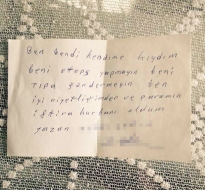 Ben kendi kendime kıydım
beni otops yapmayın beni
tıpa göndermeyin ben
iyi niyetlerimden ve paramla
iftira kurbanı oldum
yazan